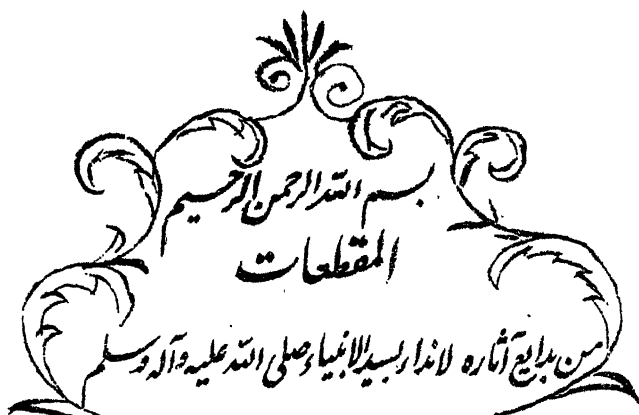 بسم الله الرحمن الرحيم
المقطعات
من بدايع آثاره لسيد الانبياء صلى الله عليه وآله وسلم